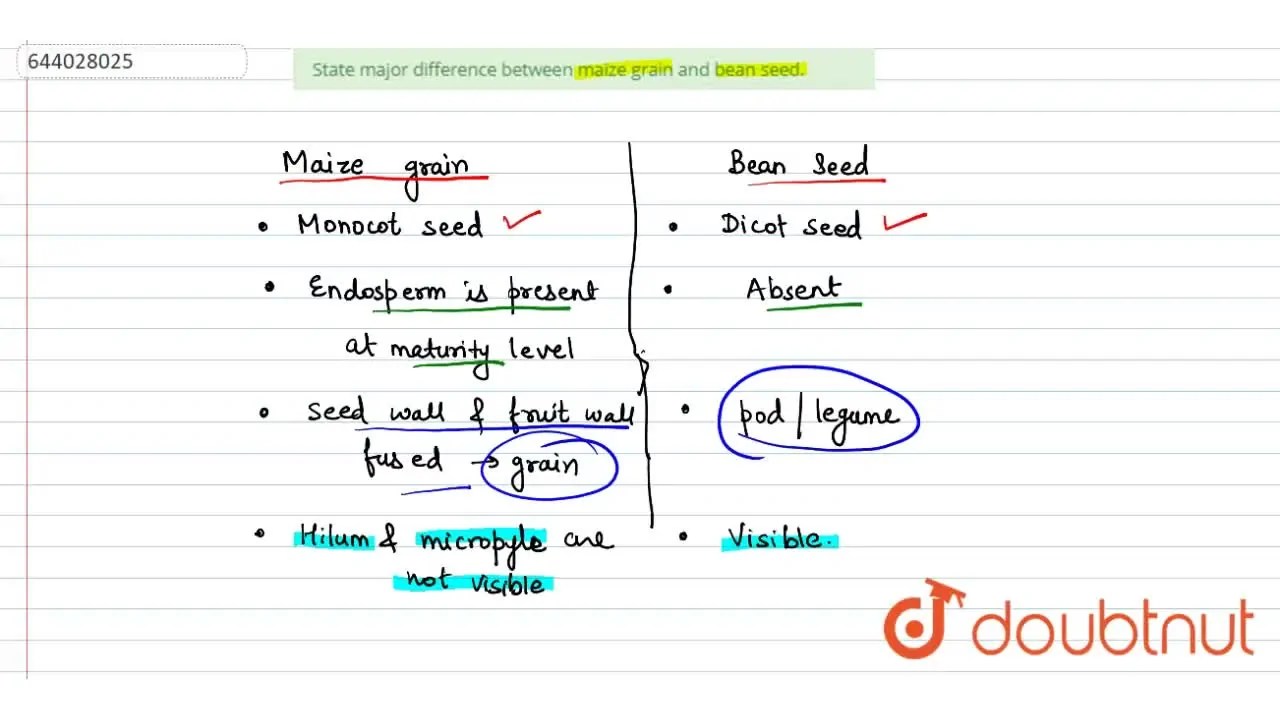 644028025
State major difference between maize grain and bean seed.
Maize grain
Bean Seed
• Monocot seed ✓
• Dicot seed ✓
• Endosperm is present
at maturity level
• Absent
• Seed wall & fruit wall
fused → grain
• pod / legume
• Hilum & micropyle are
not visible
• Visible.
doubtnut